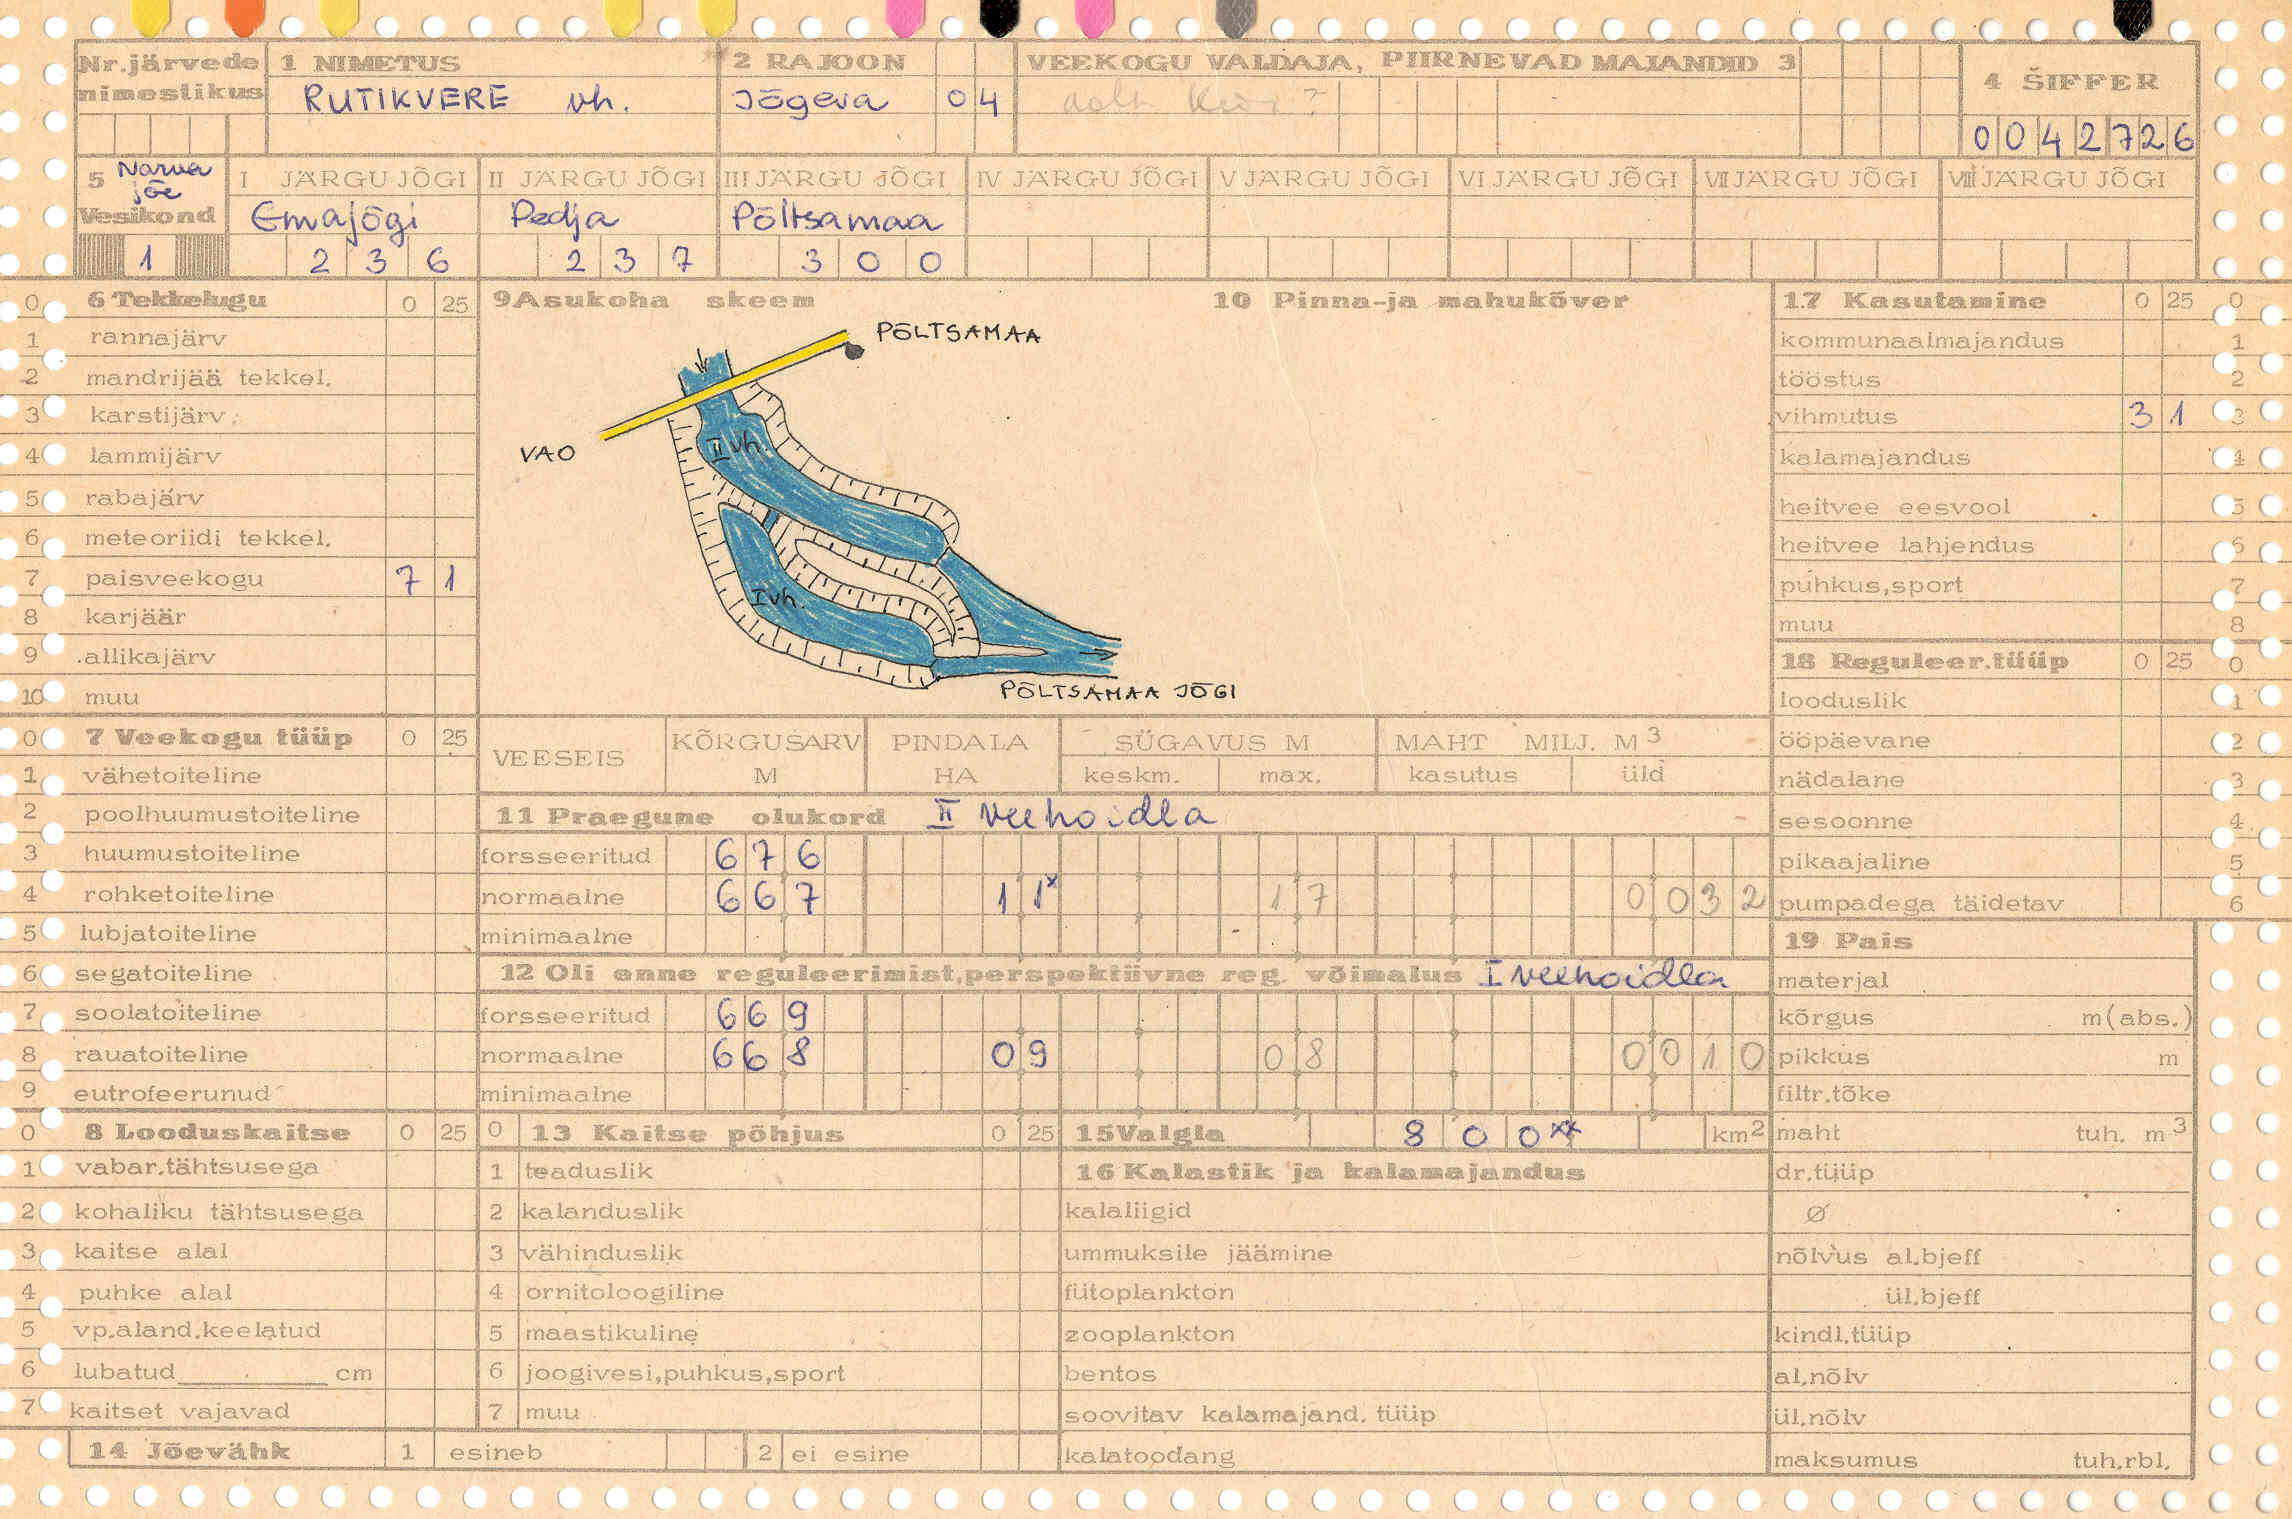 Nr.järvede nimestikus
1 NIMETUS
RUTIKVERE vh.
2 RAJOON
Jõgeva 04
VEEKOGU VALDAJA, PIIRNEVAD MAJANDID 3
4 ŠIFFER
0042726
5 Narva jõe
Vesikond
1
I JÄRGU JÕGI
Emajõgi
236
II JÄRGU JÕGI
Pedja
237
III JÄRGU JÕGI
Põltsamaa
300
IV JÄRGU JÕGI
V JÄRGU JÕGI
VI JÄRGU JÕGI
VII JÄRGU JÕGI
VIII JÄRGU JÕGI
0 6 Tekkelugu 0 25
1 rannajärv
2 mandrijää tekkel.
3 karstijärv
4 lammijärv
5 rabajärv
6 meteoriidi tekkel.
7 paisveekogu 7 1
8 karjäär
9 allikajärv
10 muu
0 7 Veekogu tüüp 0 25
1 vähetoiteline
2 poolhuumustoiteline
3 huumustoiteline
4 rohketoiteline
5 lubjatoiteline
6 segatoiteline
7 soolatoiteline
8 rauatoiteline
9 eutrofeerunud
0 8 Looduskaitse 0 25
1 vabar.tähtsusega
2 kohaliku tähtsusega
3 kaitse alal
4 puhke alal
5 vp.aland.keelatud
6 lubatud cm
7 kaitset vajavad
14 Jõevähk 1 esineb 2 ei esine
9 Asukoha skeem
10 Pinna-ja mahukõver
PÕLTSAMAA
VAO
II vh.
I vh.
PÕLTSAMAA JÕGI
VEESEIS
KÕRGUSARV M
PINDALA HA
SÜGAVUS M
keskm. max.
MAHT MILJ. M3
kasutus üld
11 Praegune olukord II veehoidla
forsseeritud 676
normaalne 667 11x 17 0032
minimaalne
12 Oli enne reguleerimist,perspektiivne reg. võimalus I veehoidla
forsseeritud 669
normaalne 668 09 08 0010
minimaalne
0 13 Kaitse põhjus 0 25
1 teaduslik
2 kalanduslik
3 vähinduslik
4 ornitoloogiline
5 maastikuline
6 joogivesi,puhkus,sport
7 muu
15 Valgla 800xx km2
16 Kalastik ja kalamajandus
kalaliigid
ummuksile jäämine
fütoplankton
zooplankton
bentos
soovitav kalamajand. tüüp
kalatoodang
17 Kasutamine 0 25 0
kommunaalmajandus 1
tööstus 2
vihmutus 3 1 3
kalamajandus 4
heitvee eesvool 5
heitvee lahjendus 6
puhkus,sport 7
muu 8
18 Reguleer.tüüp 0 25 0
looduslik 1
ööpäevane 2
nädalane 3
sesoonne 4
pikaajaline 5
pumpadega täidetav 6
19 Pais
materjal
kõrgus m(abs.)
pikkus m
filtr.tõke
maht tuh. m3
dr.tüüp
Ø
nõlvus al.bjeff
ül.bjeff
kindl.tüüp
al.nõlv
ül.nõlv
maksumus tuh.rbl.